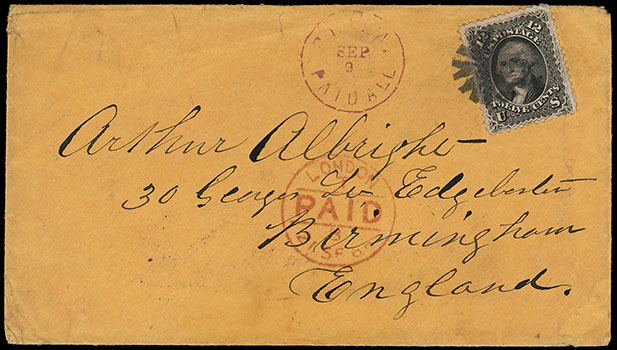 SEP
9
PAID ALL
12 12
U.S. POSTAGE
TWELVE CENTS
U S
Arthur Albright
30 Georges Edgebaston
Birmingham
England.
LONDON
PAID